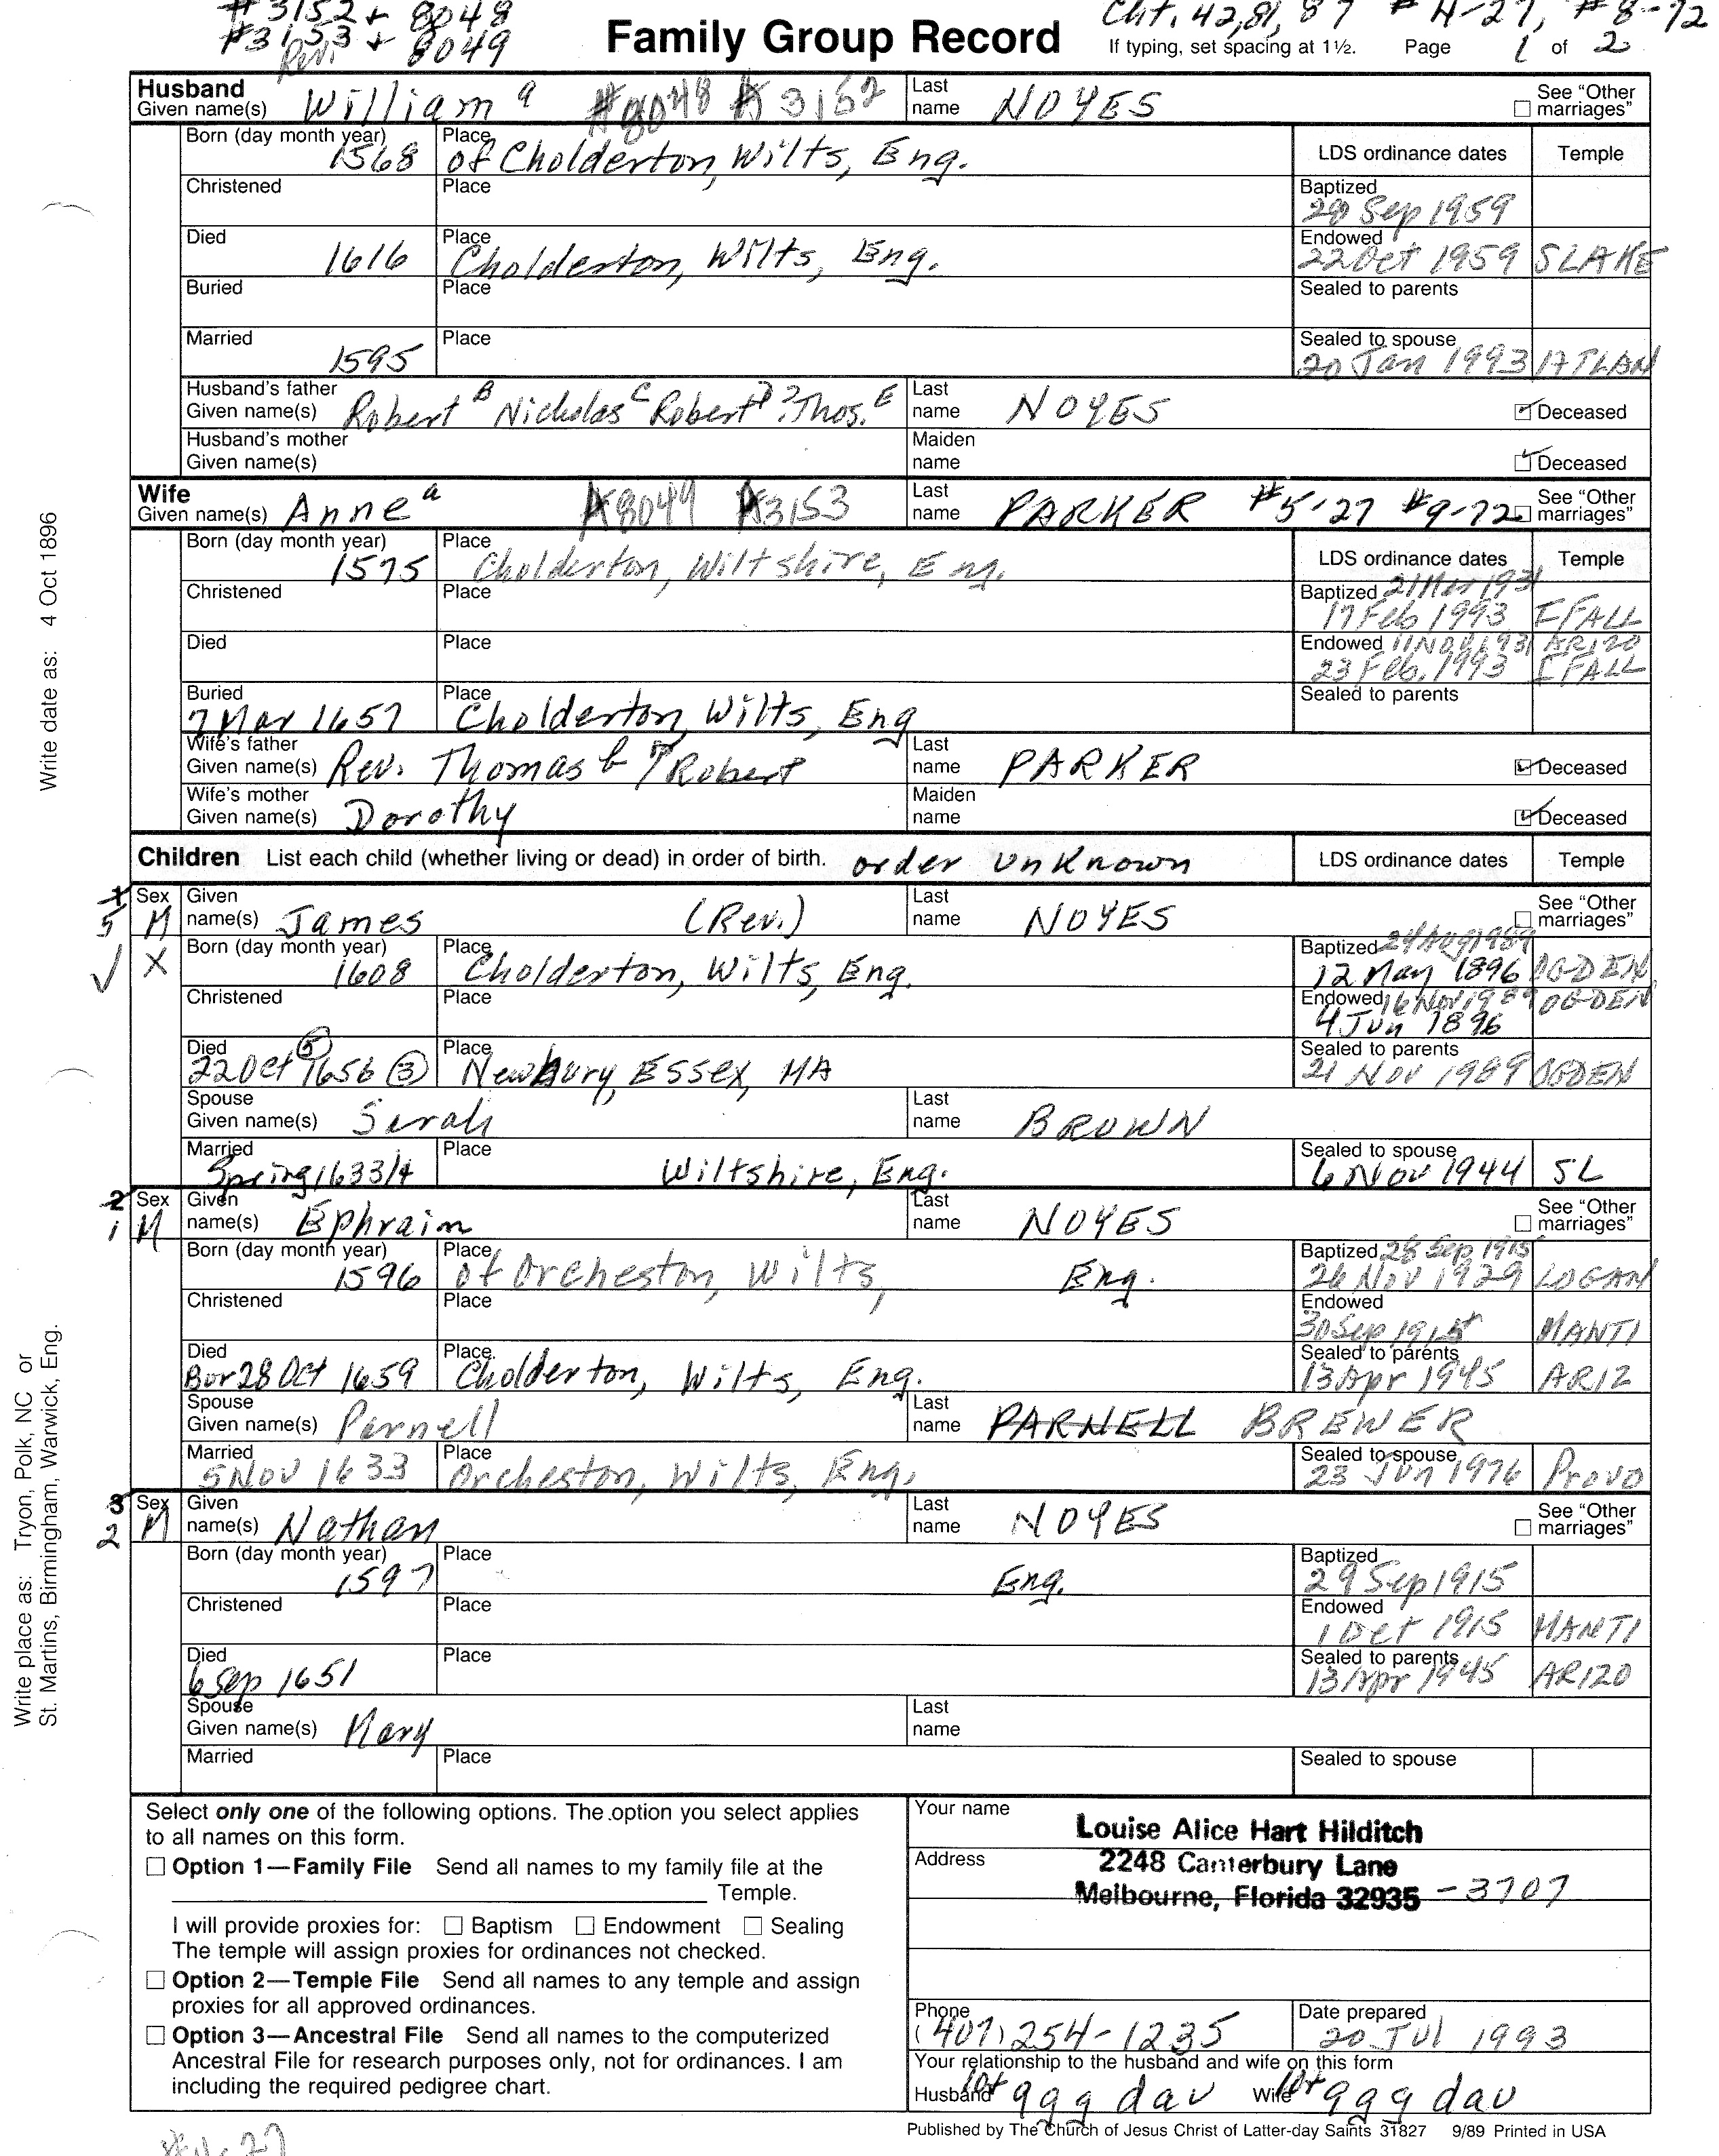 #3152 + 8048
#3153 + 8049
Rev.
Cht. 42, 81, 87 #4-27, #8-72
Family Group Record
If typing, set spacing at 1½. Page 1 of 2
Husband
Given name(s) William a #8048 #3152
Last name NOYES
See "Other marriages"
Born (day month year) 1568
Place of Cholderton, Wilts, Eng.
LDS ordinance dates Temple
Christened
Place
Baptized 29 Sep 1959
Died 1616
Place Cholderton, Wilts, Eng.
Endowed 22 Oct 1959 SLAKE
Buried
Place
Sealed to parents
Married 1595
Place
Sealed to spouse 20 Jan 1993 ATLAN
Husband's father
Given name(s) Robert B Nicholas C Robert D ?Thos. E
Last name NOYES
Deceased
Husband's mother
Given name(s)
Maiden name
Deceased
Wife
Given name(s) Anne a #8049 #3153
Last name PARKER #5-27 #9-72
See "Other marriages"
Born (day month year) 1575
Place Cholderton, Wiltshire, Eng.
LDS ordinance dates Temple
Christened
Place
Baptized 21 Mar 1931
17 Feb 1993 IFALL
Died
Place
Endowed 11 Nov 1931 ARIZO
23 Feb. 1993 IFALL
Buried 7 Mar 1657
Place Cholderton, Wilts, Eng
Sealed to parents
Wife's father
Given name(s) Rev. Thomas b Robert
Last name PARKER
Deceased
Wife's mother
Given name(s) Dorothy
Maiden name
Deceased
Children List each child (whether living or dead) in order of birth. order unknown
LDS ordinance dates Temple
1
5
Sex M
Given name(s) James (Rev.)
Last name NOYES
See "Other marriages"
X
Born (day month year) 1608
Place Cholderton, Wilts, Eng.
Baptized 24 Aug 1989
12 May 1896 OGDEN
Christened
Place
Endowed 16 Nov 1989 OGDEN
4 Jun 1896
Died 22 Oct 1656 (5) (3)
Place Newbury, Essex, MA
Sealed to parents 21 Nov 1989 OGDEN
Spouse
Given name(s) Sarah
Last name BROWN
Married Spring 1633/4
Place Wiltshire, Eng.
Sealed to spouse 6 Nov 1944 SL
2
1
Sex M
Given name(s) Ephraim
Last name NOYES
See "Other marriages"
Born (day month year) 1596
Place of Orcheston, Wilts, Eng.
Baptized 28 Sep 1915
26 Nov 1929 LOGAN
Christened
Place
Endowed 30 Sep 1915 MANTI
Died Bur 28 Oct 1659
Place Cholderton, Wilts, Eng.
Sealed to parents 13 Apr 1945 ARIZ
Spouse
Given name(s) Parnell
Last name PARNELL BREWER
Married 5 Nov 1633
Place Orcheston, Wilts, Eng.
Sealed to spouse 23 Jun 1976 Provo
3
2
Sex M
Given name(s) Nathan
Last name NOYES
See "Other marriages"
Born (day month year) 1597
Place Eng.
Baptized 29 Sep 1915
Christened
Place
Endowed 1 Oct 1915 MANTI
Died 6 Sep 1651
Place
Sealed to parents 13 Apr 1945 ARIZO
Spouse
Given name(s) Mary
Last name
Married
Place
Sealed to spouse
Write date as: 4 Oct 1896
Write place as: Tryon, Polk, NC or
St. Martins, Birmingham, Warwick, Eng.
Select only one of the following options. The option you select applies
to all names on this form.
Option 1—Family File Send all names to my family file at the
Temple.
I will provide proxies for: Baptism Endowment Sealing
The temple will assign proxies for ordinances not checked.
Option 2—Temple File Send all names to any temple and assign
proxies for all approved ordinances.
Option 3—Ancestral File Send all names to the computerized
Ancestral File for research purposes only, not for ordinances. I am
including the required pedigree chart.
Your name Louise Alice Hart Hilditch
Address 2248 Canterbury Lane
Melbourne, Florida 32935 -3707
Phone (407) 254-1235
Date prepared 20 Jul 1993
Your relationship to the husband and wife on this form
Husband 10t ggg dau Wife 10t ggg dau
Published by The Church of Jesus Christ of Latter-day Saints 31827 9/89 Printed in USA
#4-27